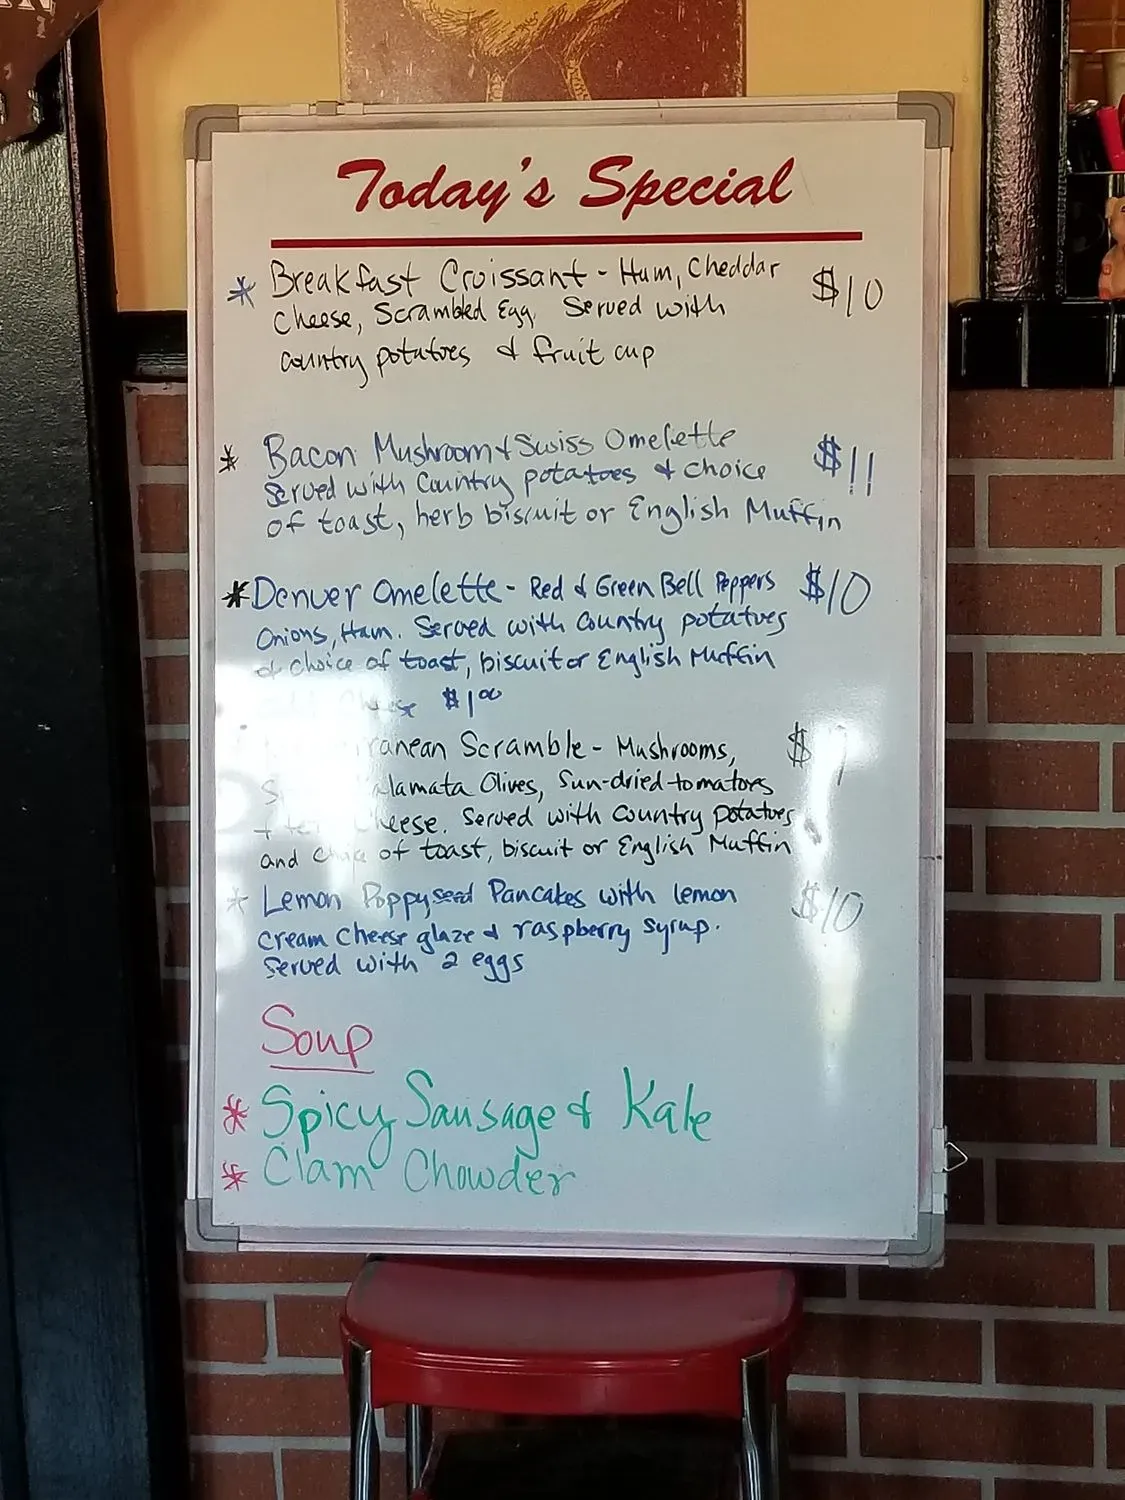 Today's Special
* Breakfast Croissant - Ham, Cheddar $10
Cheese, Scrambled Egg. Served with
country potatoes & fruit cup
* Bacon Mushroom & Swiss Omelette $11
Served with Country potatoes & choice
of toast, herb biscuit or English Muffin
* Denver Omelette - Red & Green Bell Peppers $10
Onions, Ham. Served with Country potatoes
& choice of toast, biscuit or English Muffin
Cheese $1.00
Scramble - Mushrooms,
Olives, Sun-dried tomatoes
Cheese. Served with Country Potatoes
and choice of toast, biscuit or English Muffin
* Lemon Poppyseed Pancakes with lemon $10
cream cheese glaze & raspberry syrup.
Served with 2 eggs
Soup
* Spicy Sausage & Kale
* Clam Chowder